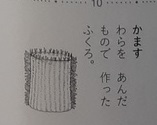 10
かます
わらを　あんだ
もので　作った
ふくろ。